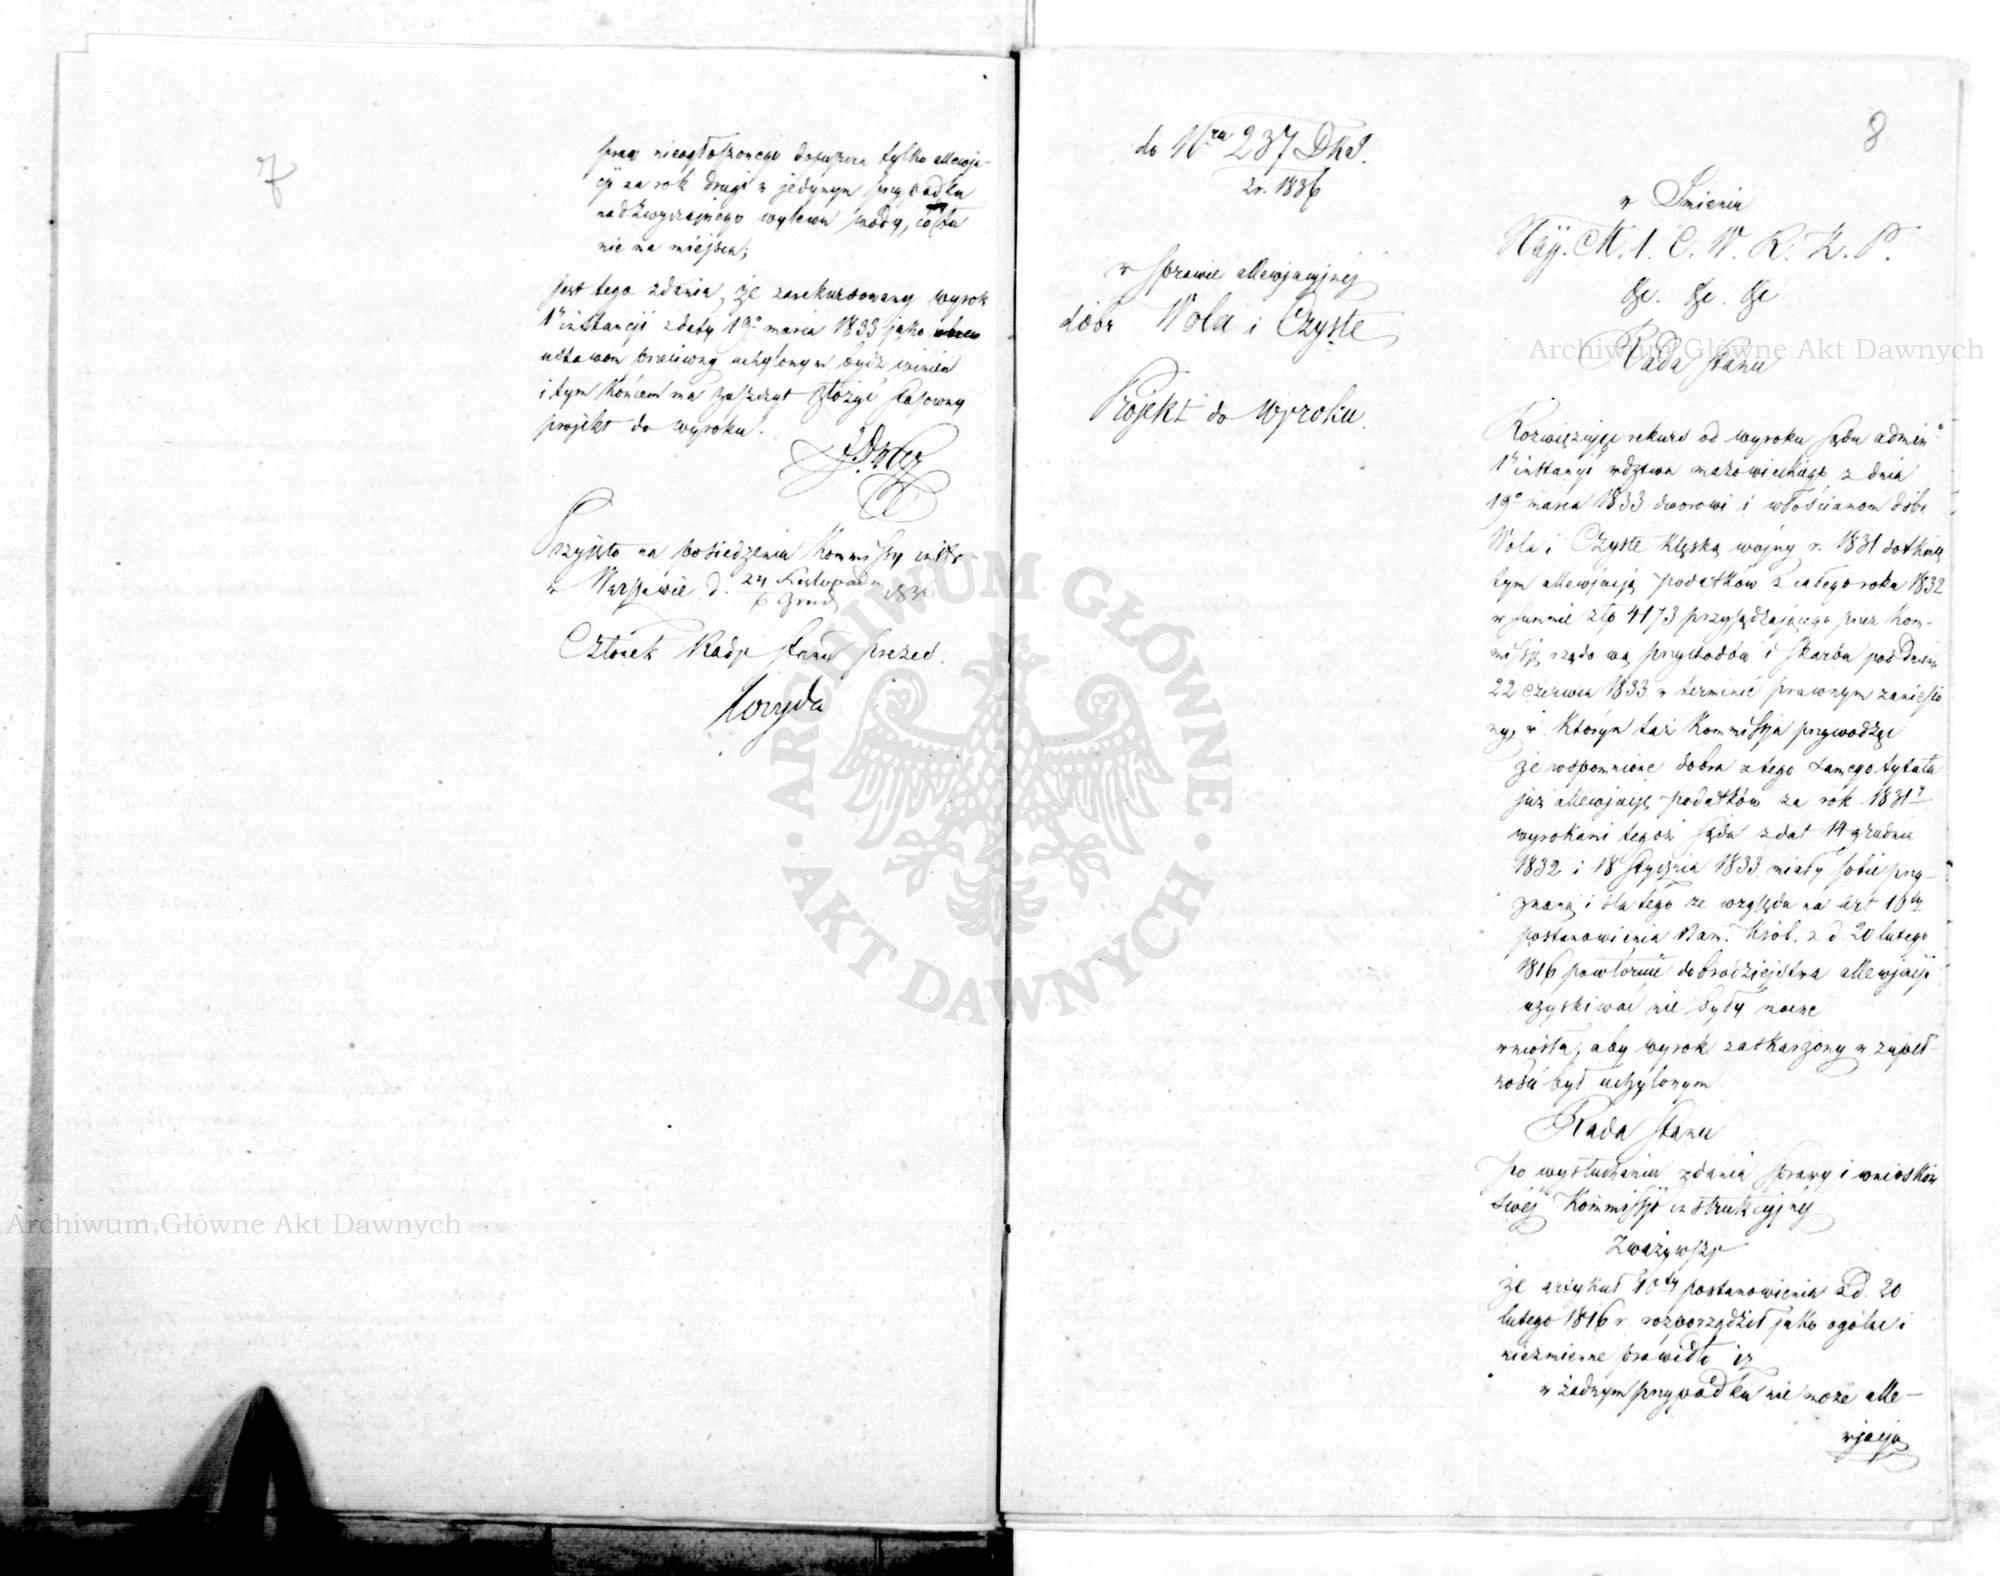 7
praw nieogłoszonego dopuszcza tylko allewja-
cji za rok drugi w jedynym przypadku
nadzwyczajnego wylewu wody, co tu
nie ma miejsca;
jest tego zdania, że zarekursowany wyrok
1ej instancji z daty 19o marca 1833 jako
ustawom przeciwny uchylonym bydź winien
i tym końcem ma zaszczyt złożyć stosowny
projekt do wyroku.
Przyjęto na posiedzeniu Kommissyi instr.
w Warszawie d. 24 Listopada
6 Grud 1836
Członek Rady Stanu prezed.
do Nru 237 DkS.
z r. 1836
w sprawie allewjacyjnej
dóbr Wola i Czyste
Projekt do Wyroku.
8
w Imieniu
Nay. M. 1. C. W. R. K. P.
&c. &c. &c
Rada Stanu
Rozwiązując rekurs od wyroku Sądu admin
1ej instancji wdztwa mazowieckiego z dnia
19o marca 1833 dworowi i włościanom dóbr
Wola i Czyste klęską wojny r. 1831 dotknię
tym allewjację podatków z całego roku 1832
w summie złp 4173 przysądzającego przez Kom-
missję rządową przychodów i skarbu pod dniem
22 czerwca 1833 w terminie prawnym zaniesio
ny, w którym taż Kommissja przywodząc
że wspomnione dobra z tego samego tytułu
już allewjację podatków za rok 1831
wyrokami tegoż Sądu z dat 14 grudnia
1832 i 18 Stycznia 1833 miały sobie przy-
znaną i dla tego ze względu na art 10ty
postanowienia Nam. Król. z d. 20 lutego
1816 powtórnie dobrodziejstwa allewjacji
uzyskiwać nie były mocne
wniosła, aby wyrok zaskarżony w zupeł-
ności był uchylonym
Rada Stanu
po wysłuchaniu zdania sprawy i wniosków
swéj Kommissji instrukcyjnéj
Zważywszy
że artykuł 10ty postanowienia z d. 20
lutego 1816 r. rozporządził jako ogólne i
niezmienne prawidło iż
w żadnym przypadku nie może alle-
wjacja
Archiwum Główne Akt Dawnych
Archiwum Główne Akt Dawnych
ARCHIWUM GŁÓWNE · AKT DAWNYCH ·